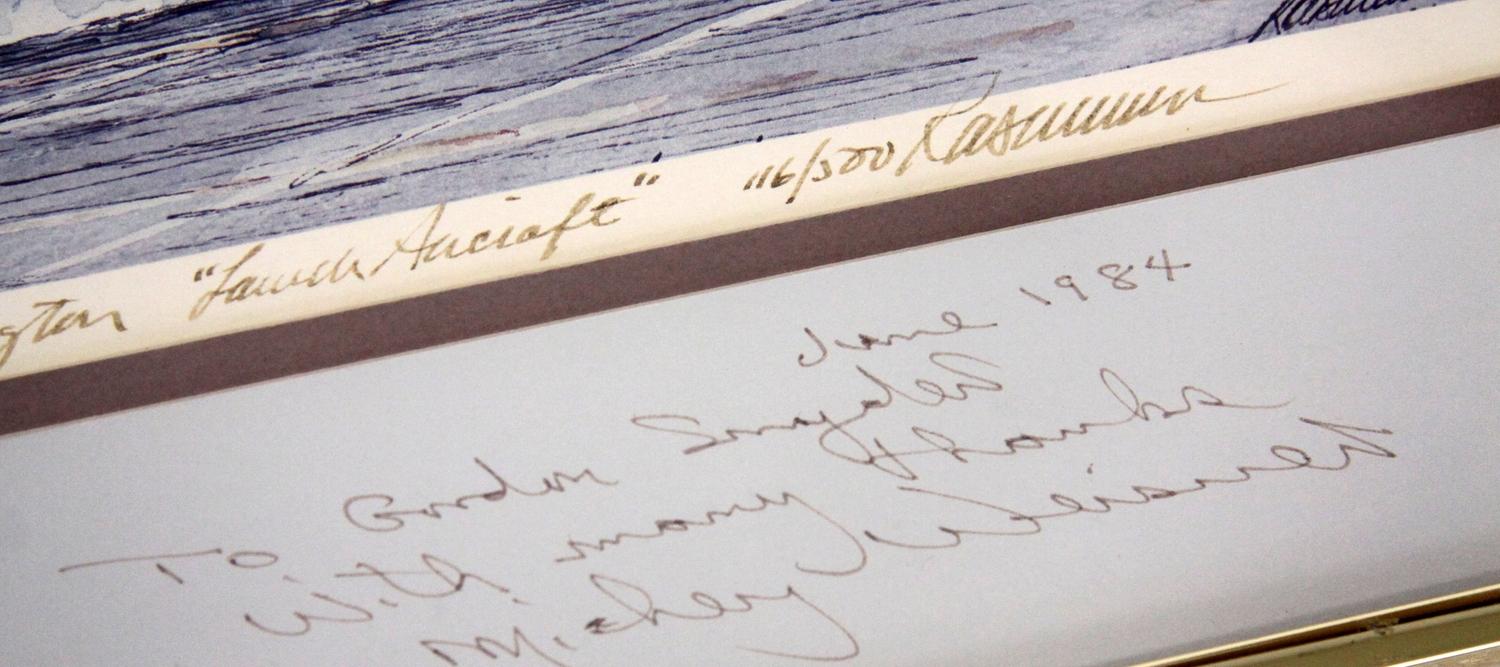 Rasmussen
gton "Launch Aircraft" "16/500 Rasmussen
June 1984
To Gordon Snyder
With many thanks
Mickey Weisner